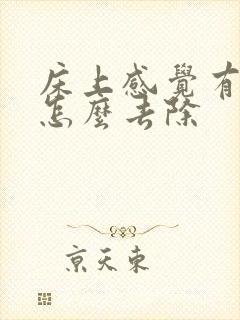 床上感覺有
怎麼去除
京天東